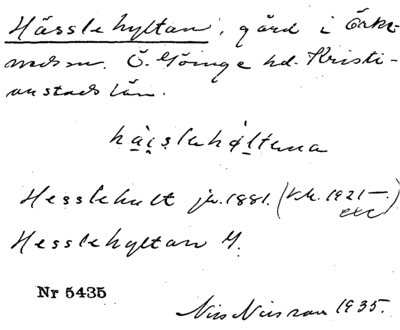 Hässlehyltan, gård i Örke-
neds sn. Ö. Göinge hd. Kristi-
anstads län.
Hesslehult jr. 1881. (V.k. 1921—.)
Hesslehyltan Y.
Nr 5435
Nils Nilsson 1935.